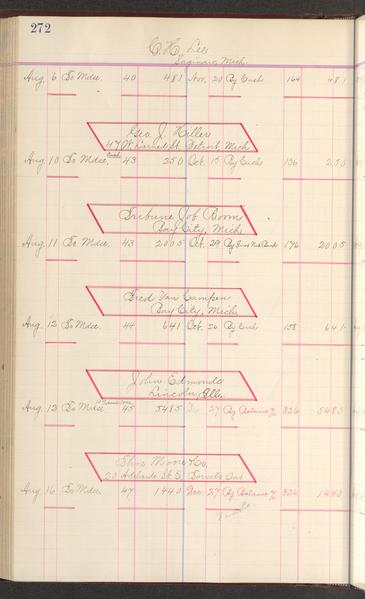 272
C. H. Lee
Saginaw, Mich.
Aug. 6 To Mdse. 40 4 81 Nov. 20 By Cash 164 4 81
Geo. J. Hiller
47 W. Larned St. Detroit, Mich
Aug. 10 To Mdse. 43 2 50 Oct. 15 By Cash 136 2 50
Tribune Job Room
Bay City, Mich.
Aug. 11 To Mdse. 43 20 05 Oct. 29 By 176 20 05
Fred Van Campen
Bay City, Mich.
Aug. 12 To Mdse. 44 6 41 Oct. 26 By Cash 158 6 41
John Edmonds
Lincoln, Ill.
Aug. 12 To Mdse 45 54 85 Dec 27 By Balance 326 54 85
Moore & Co.
20 Adelaide St. E. Toronto Ont
Aug. 16 To Mdse. 47 14 40 Dec. 27 By Balance 326 14 40